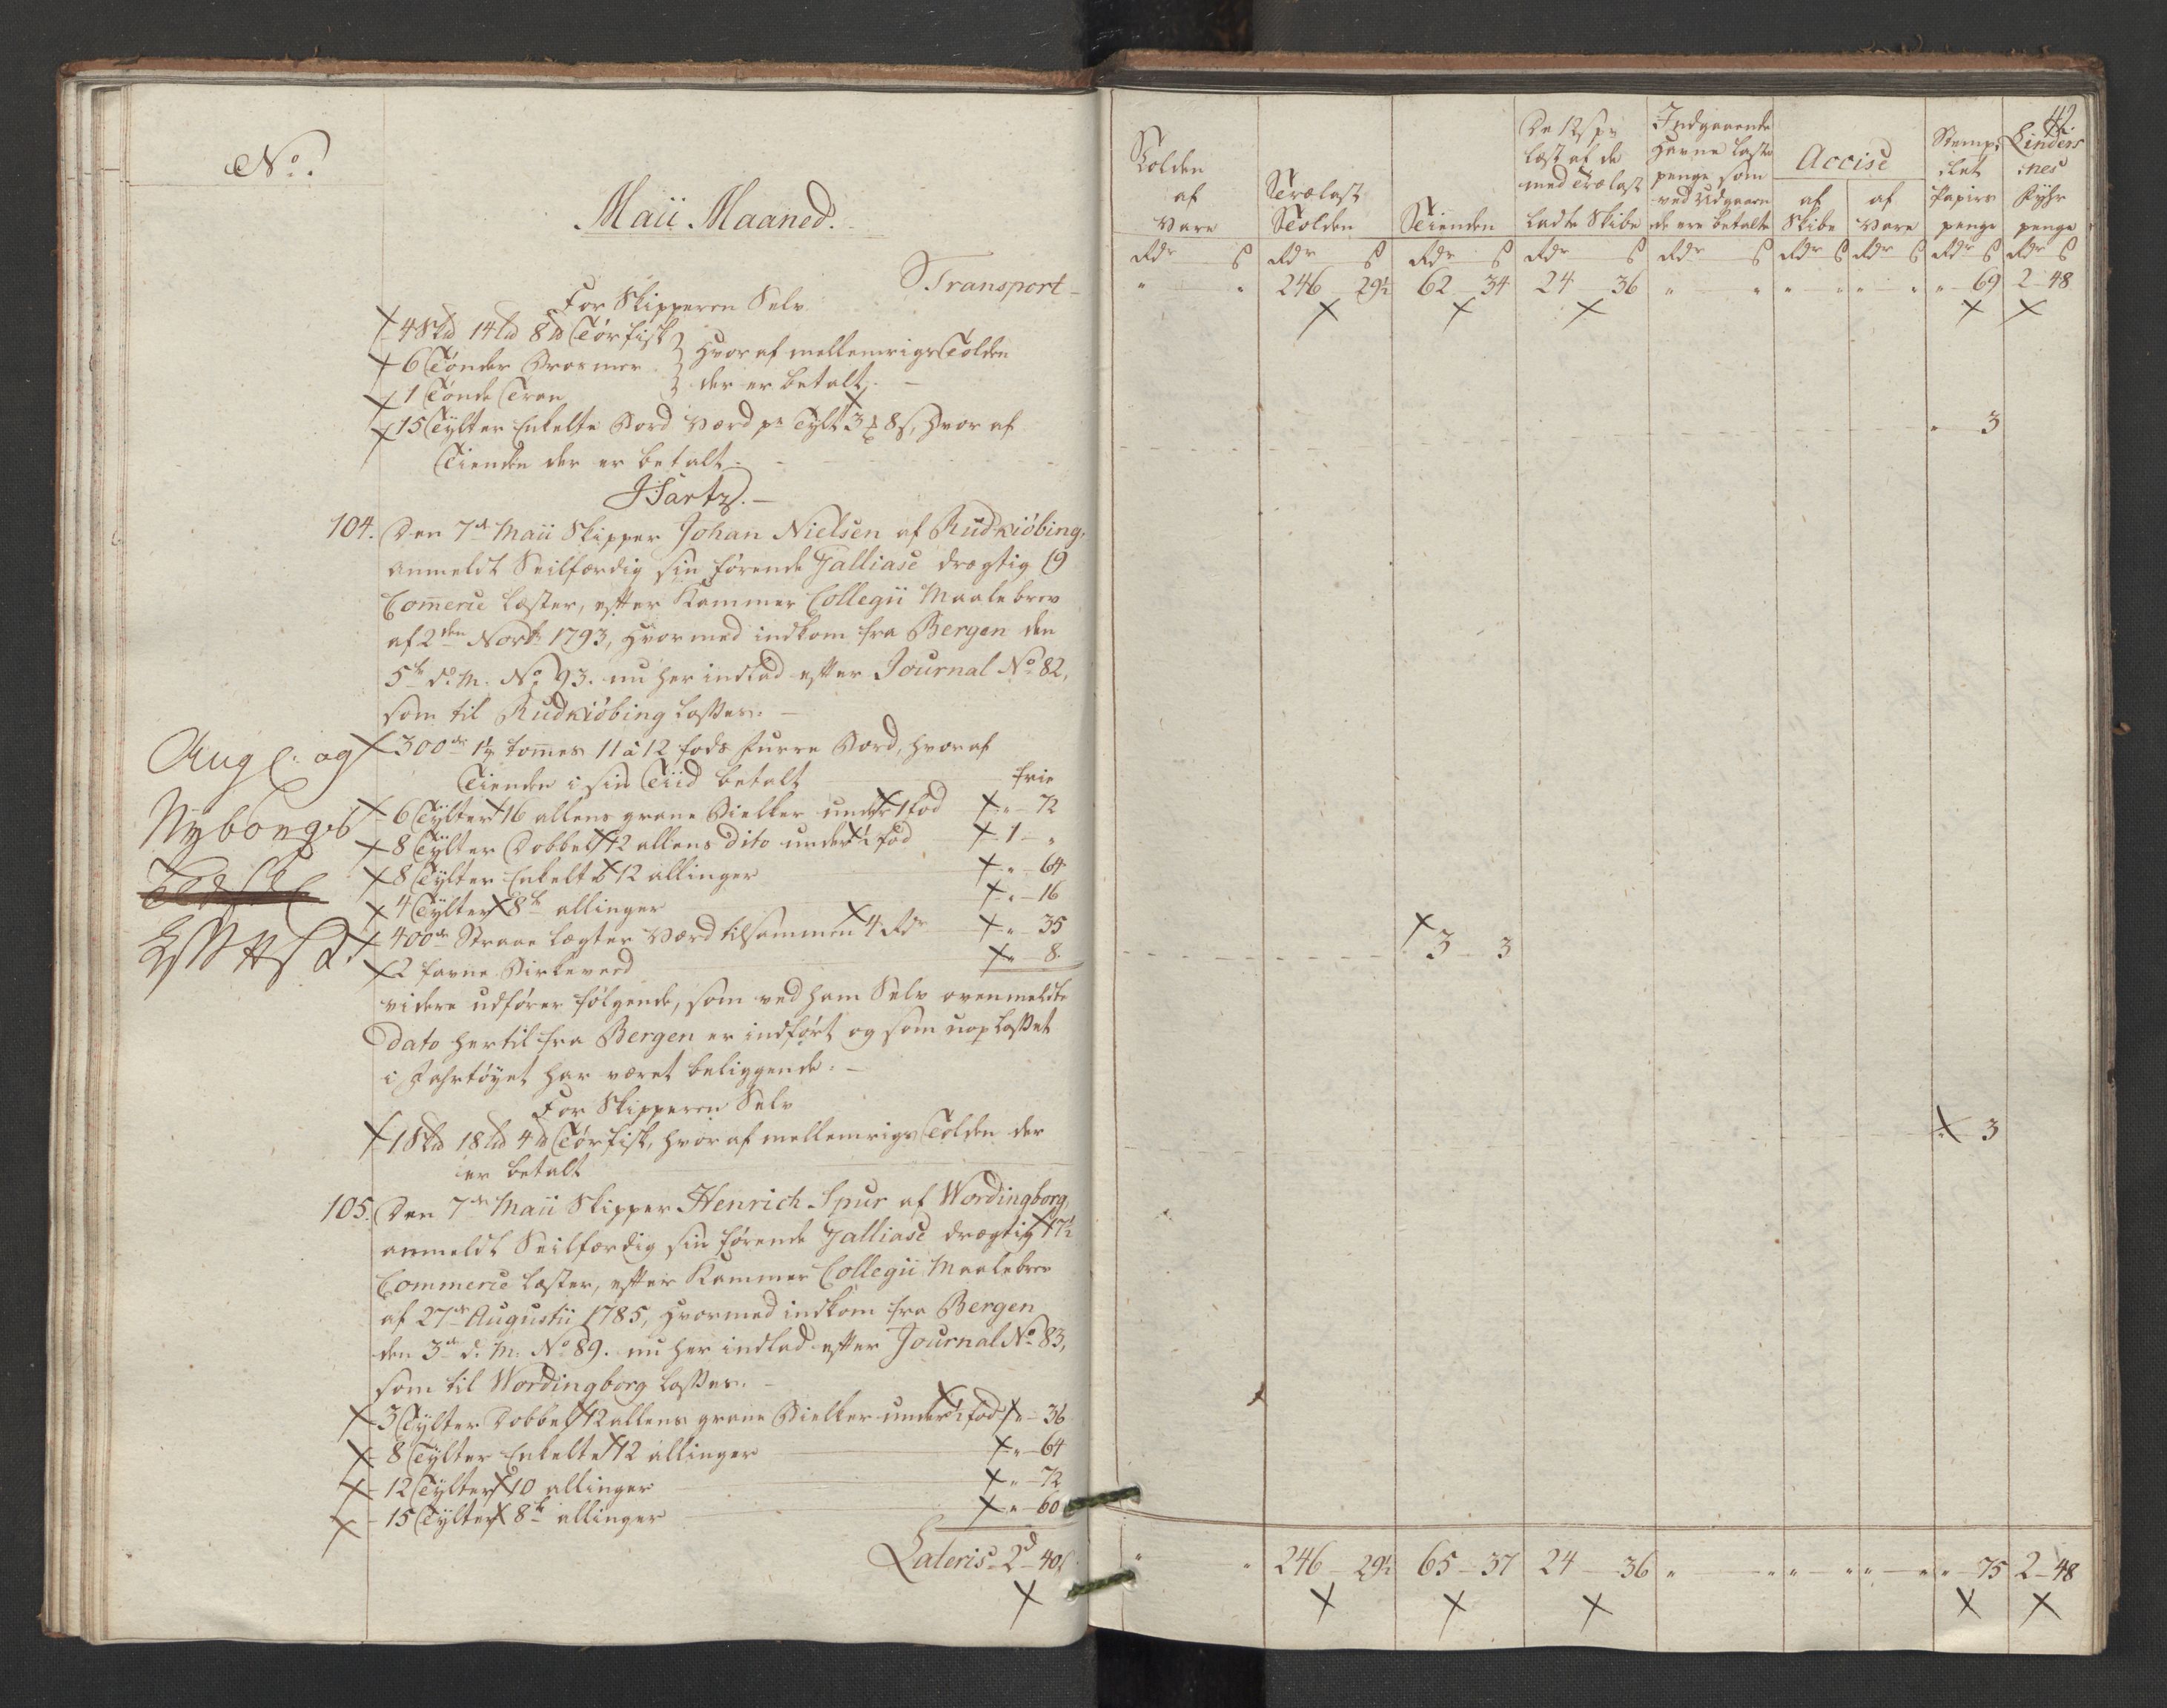 No.
Maii Maaned.
Transport
For Skipperen Selv
4 Skd 14 Ld 8 d Törfisk
6 Tönder Brosmer
1 Tönde Tran
hvor af mellemrigs Tolden
der er betalt.
15 Tÿlter Enkelte Bord Værd pr Tÿlt 3 8 s, hvor af
Tienden der er betalt
JHartz.
104. Den 7de Maii Skipper Johan Nielsen af Rudkiöbing,
anmeldt Seilfærdig sin förende Galliase drægtig 19
Comerce Læster, efter Kammer Collegii Maalebrev
af 2den 1793, hvormed indkom fra Bergen den
5te d. M. No 93. nu her indlad efter Journal No 82,
som til Rudkiöbing losses.
300de 1½ tommes 11 a 12 fods furre Bord, hvor af
Tienden i sin Tiid betalt frie
6 Tÿlter 16 allens grane Bielker under 1 fod " 72
8 Tÿlter Dobbelt 12 allens dito under ½ fod 1 "
8 Tÿlter Enkelte 12 allinger " 64
4 Tÿlter 8te allinger " 16
400de Straae lægter Værd tilsammen 4 Rdr " 35
2 favne Birkeved " 8.
videre udförer fölgende, som ved ham Selv ovenmeldte
Dato hertil fra Bergen er indfört og som uoplosset
i Fahrtöyet har været beliggende.
For Skipperen Selv
1 Skd 18 Ld 4 d Törfisk, hvor af mellemrigs Tolden der
er betalt
105. Den 7de Maii Skipper Henrich Spur af Wordingborg,
anmeldt Seilfærdig sin förende Jalliase drægtig 17½
Commerce Læster, efter Kammer Collegii Maalebrev
af 27de Augustii 1785, hvormed indkom fra Bergen
den 3de d. M. No 89. nu her indlad efter Journal No 83,
som til Wordingborg losses.
3 Tÿlter Dobbelt 12 allens grane Bielker under ½ fod " 36
8 Tÿlter Enkelte 12 allinger " 64
12 Tÿlter 10 allinger " 72
15 Tÿlter 8te allinger " 60
Lateris 2d 40s
Tolden af Vare
Trælast Tolden
Tienden
De 12 s pr læst af de med Trælast ladte Skibe
Indgaaende Havne Laste penge som ved Udgaaende ere betalte
Accise
af Skibe
af Vare
Stemplet Papirs penge
42.
Linders:nes Fÿhr penge
Rdr s Rdr s Rdr s Rdr s Rdr s Rdr s Rdr s Rdr s Rdr s
" " 246 29½ 62 34 24 36 " " " " " " " 69 2 48
" 3
3 3
" 3
" " 246 29½ 65 37 24 36 " " " " " " " 75 2 48